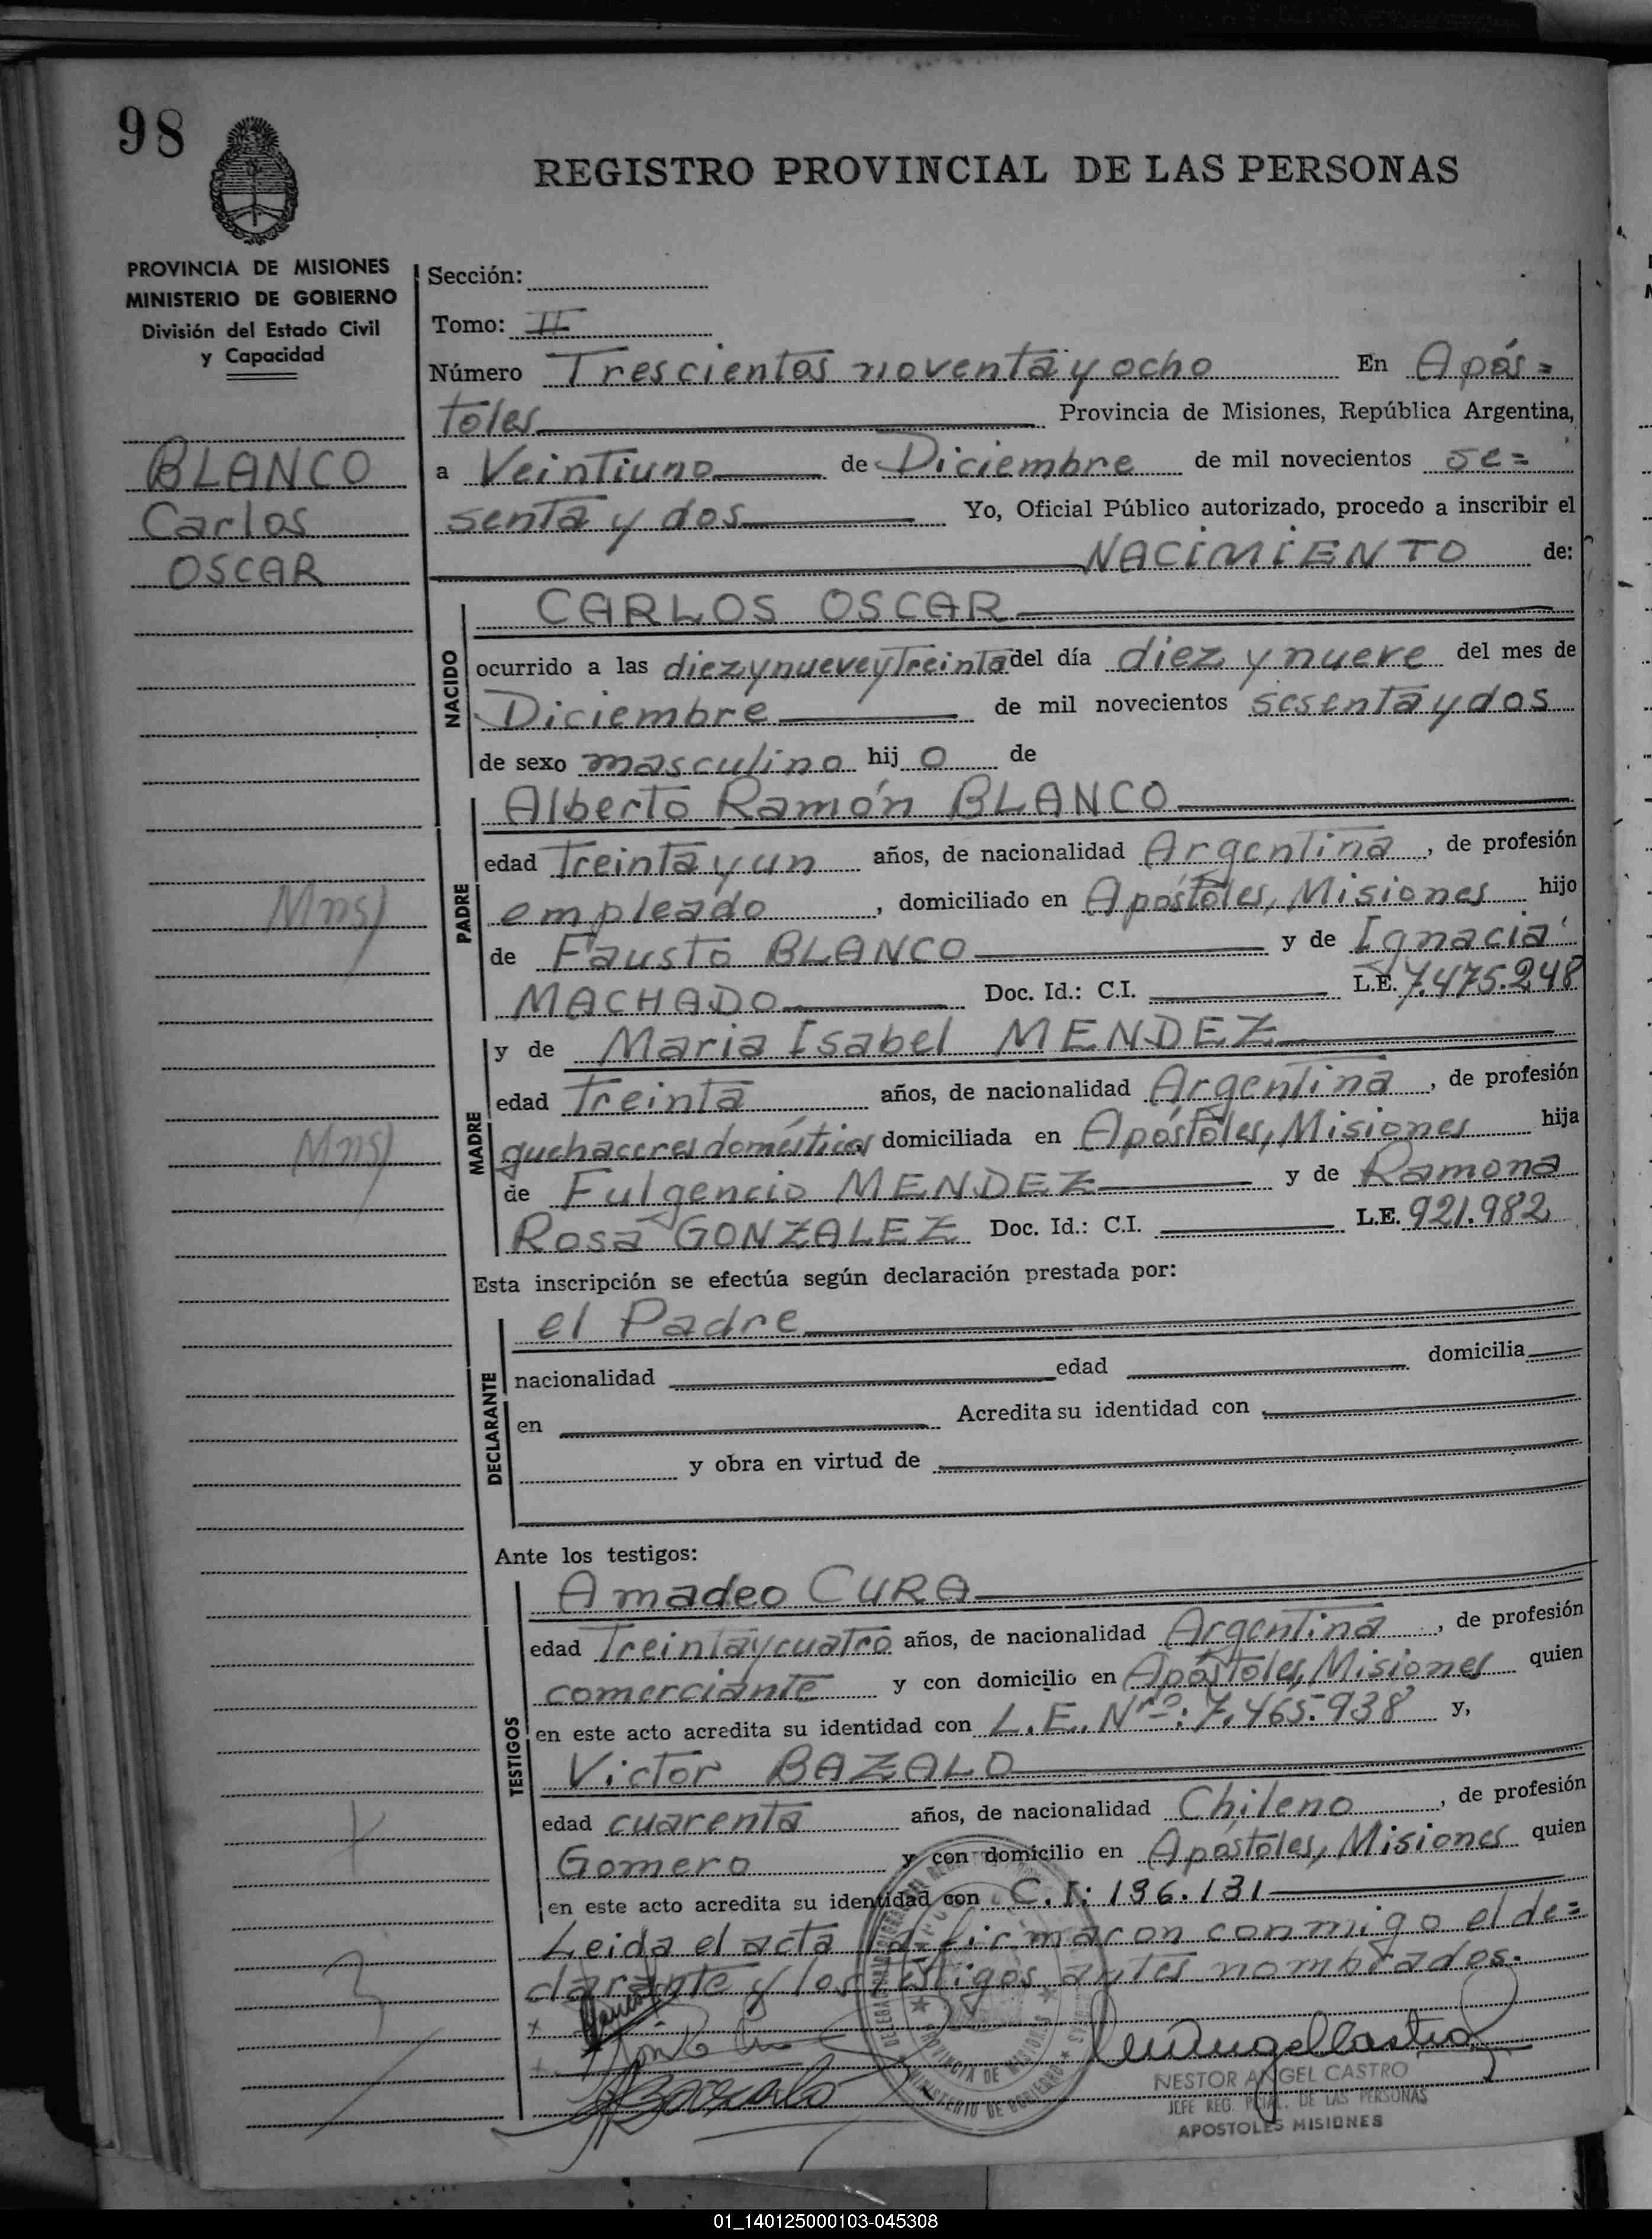 98
REGISTRO PROVINCIAL DE LAS PERSONAS
PROVINCIA DE MISIONES
MINISTERIO DE GOBIERNO
División del Estado Civil
y Capacidad
BLANCO
Carlos
OSCAR
Mns
Mns
Sección:
Tomo: II
Número Trescientos noventa y ocho En Após=
toles Provincia de Misiones, República Argentina,
a Veintiuno de Diciembre de mil novecientos se=
senta y dos Yo, Oficial Público autorizado, procedo a inscribir el
NACIMIENTO de:
NACIDO
CARLOS OSCAR
ocurrido a las diez y nueve y Treinta del día diez y nueve del mes de
Diciembre de mil novecientos sesenta y dos
de sexo masculino hij o de
PADRE
Alberto Ramón BLANCO
edad Treinta y un años, de nacionalidad Argentina, de profesión
empleado, domiciliado en Apóstoles, Misiones hijo
de Fausto BLANCO y de Ignacia
MACHADO Doc. Id.: C.I. L.E. 7.475.248
MADRE
y de Maria Isabel MENDEZ
edad Treinta años, de nacionalidad Argentina, de profesión
quehaceres domésticos domiciliada en Apóstoles, Misiones hija
de Fulgencio MENDEZ y de Ramona
Rosa GONZALEZ Doc. Id.: C.I. L.E. 921.982
Esta inscripción se efectúa según declaración prestada por:
DECLARANTE
el Padre
nacionalidad edad domicilia
en Acredita su identidad con
y obra en virtud de
Ante los testigos:
TESTIGOS
Amadeo CURA
edad Treinta y cuatro años, de nacionalidad Argentina, de profesión
comerciante y con domicilio en Apóstoles, Misiones quien
en este acto acredita su identidad con L.E. Nro: 7.465.938 y,
Victor BAZALO
edad cuarenta años, de nacionalidad Chileno, de profesión
Gomero y con domicilio en Apostoles, Misiones quien
en este acto acredita su identidad con C.I: 136.131
Leida el acta la firmaron conmigo el de=
clarante y los testigos antes nombrados.
NESTOR ANGEL CASTRO
JEFE REG. PCIAL. DE LAS PERSONAS
APOSTOLES MISIONES
PROVINCIA DE MISIONES
MINISTERIO DE GOBIERNO
01_140125000103-045308